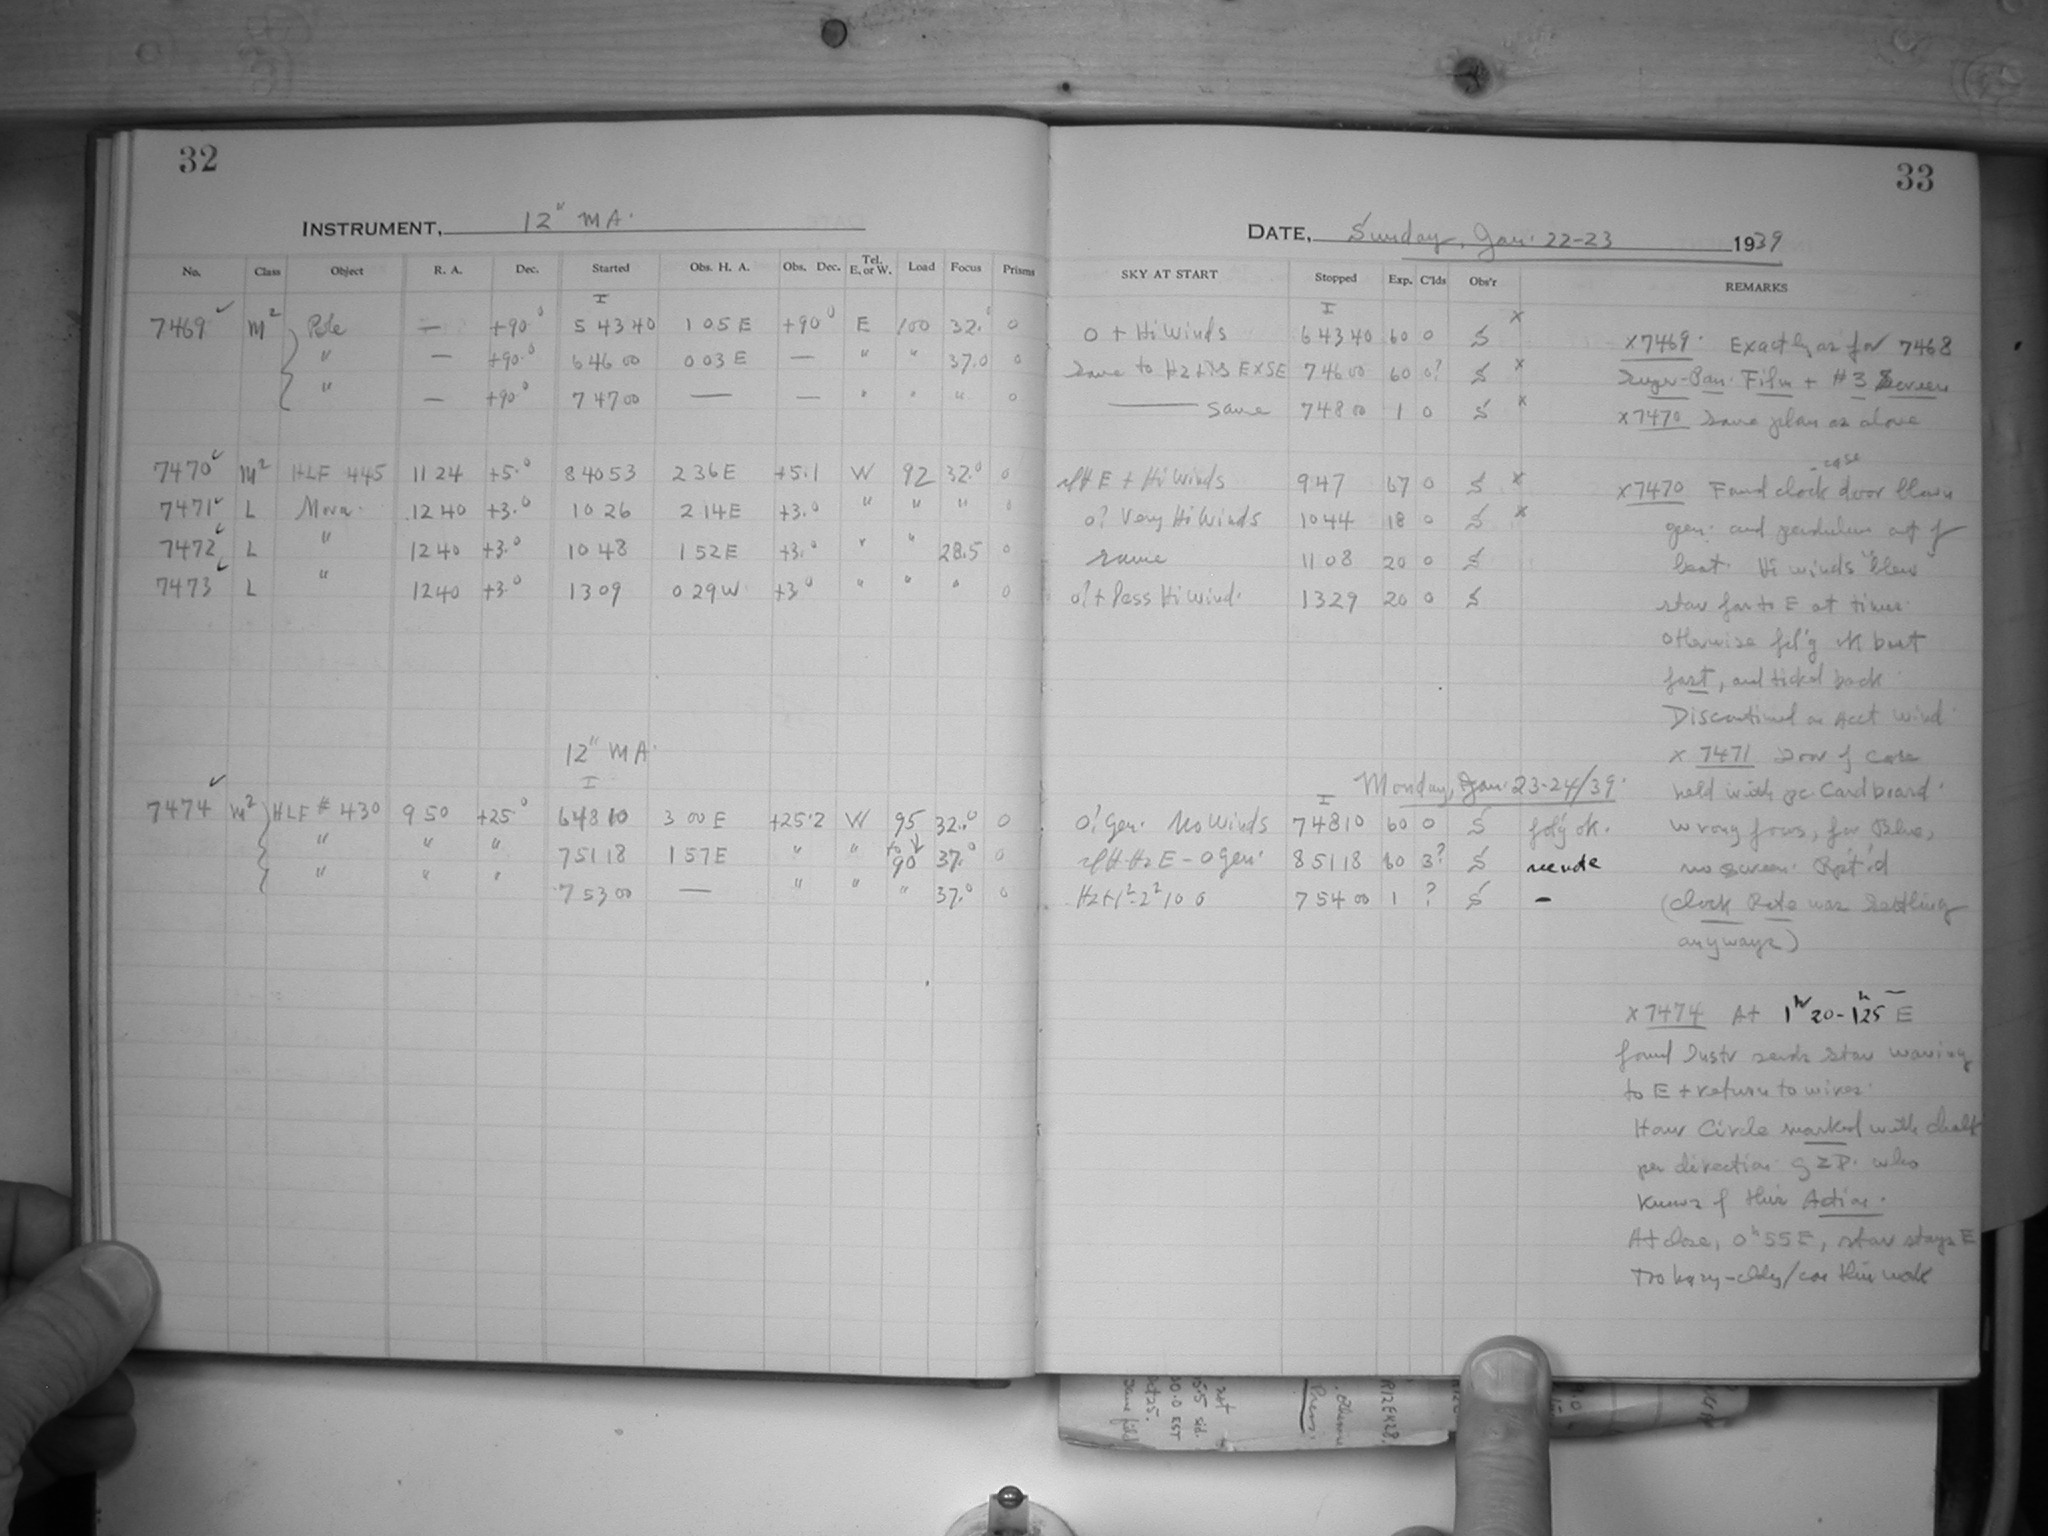 32
INSTRUMENT, 12" MA.
No. Class Object R. A. Dec. Started Obs. H. A. Obs. Dec. Tel. E. or W. Load Focus Prisms
I
7469 M² Pole — +90° 5 43 40 1 05 E +90° E 100 32.° 0
" — +90.° 6 46 00 0 03 E — " " 37.0 0
" — +90° 7 47 00 — — " " " 0
7470 M² HLF 445 11 24 +5.° 8 40 53 2 36 E +5.1 W 92 32.° 0
7471 L Mova. 12 40 +3.° 10 26 2 14 E +3.° " " " 0
7472 L " 12 40 +3.° 10 48 1 52 E +3.° " " 28.5 0
7473 L " 12 40 +3.° 13 09 0 29 W +3° " " " 0
12" MA.
I
7474 M² HLF # 430 9 50 +25° 6 48 10 3 00 E +25.2 W 95 32.° 0
" " " 7 51 18 1 57 E " " to 90 37.° 0
" " " 7 53 00 — " " " 37.° 0
33
DATE, Sunday, Jan. 22-23 1939
SKY AT START Stopped Exp. C'lds Obs'r REMARKS
I
0 + Hi Winds 6 43 40 60 0 S x
same to Hz E×SE 7 46 00 60 0? S x
— same 7 48 00 1 0 S x
E + Hi Winds 9 47 67 0 S x
0? Very Hi Winds 10 44 18 0 S x
same 11 08 20 0 S
0? + Less Hi Wind. 13 29 20 0 S
Monday, Jan. 23-24/39.
I
0? Gen. No Winds 7 48 10 60 0 S fol'g ok.
Hz E - 0 gen. 8 51 18 60 3? S
Hz + 1²-2² to 0 7 54 00 1 ? S -
x7469. Exactly as for 7468
Super-Pan. Film + #3 Screen
x7470 Same plan as above
x7470 Found clock case door blown
open. and pendulum out of
beat. Hi winds "blew"
star far to E at times.
Otherwise fol'g ok but
fast, and ticked back.
Discontinued on Acct Wind.
x 7471 Door of Case
held with pc. Cardboard.
Wrong focus, for Blue,
no screen. Rpt'd
(Clock Rate was settling
anyways)
x 7474 At 1ʰ 20-1ʰ25 E
found Instr sends star waving
to E + return to wires.
Hour Circle marked with chalk
per direction who
Knows of this Action.
At close, 0ʰ 55 E, star stays E
Too hazy-cldy/ this work